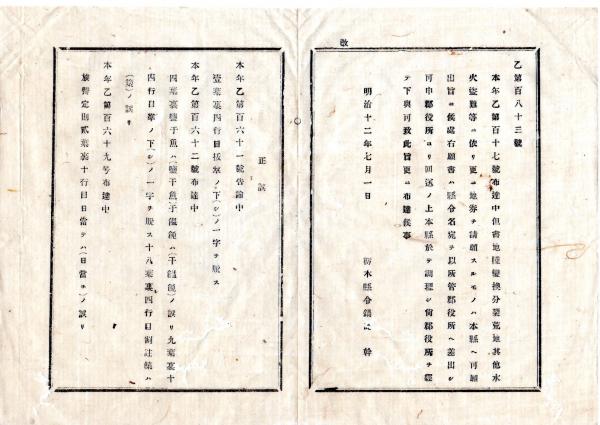 改
乙第百八十三號
本年乙第百十七號布達中但書地種變換分裂荒地其他水
火盗難等ニ依リ更ニ地券ヲ請願スルモノハ本縣ヘ可願
出旨ニ候處右願書ハ縣令名宛ヲ以所管郡役所ヘ差出シ
可申郡役所ヨリ回送ノ上本縣於テ調理シ尚郡役所ヲ經
テ下與可致此旨更ニ布達候事
明治十二年七月一日
栃木縣令鍋島幹
正誤
本年乙第百六十一號告諭中
壹葉裏四行目拔萃ノ下(シ)ノ一字ヲ脱ス
本年乙第百六十二號布達中
四葉裏鹽干魚ハ(鹽干魚)干饂飩ハ(干饂飩)ノ誤リ九葉裏十
四行目寧ノ下(シ)ノ一字ヲ脱ス十八葉裏四行目割註
ノ誤リ
本年乙第百六十九号布達中
旅籍定則貳葉裏十行目日當テハ(日當モ)ノ誤リ